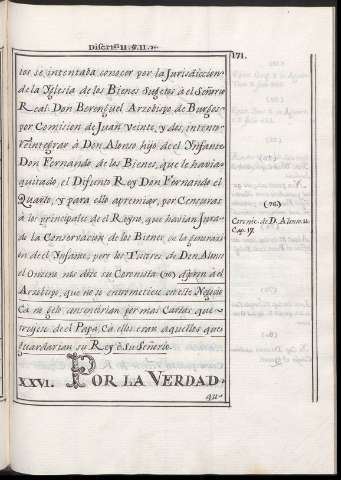 Discurso II. §. II.
171.
tos se intentaba conocer por la Jurisdiccion
de la Yglesia de los Bienes Sugetos à el Señorio
Real. Don Berenguel Arzobispo de Burgos
por Comision de Juan Veinte, y dos, intento
reintegrar à Don Alonso hijo de el Ynfante
Don Fernando, de los Bienes, que le havia
quitado el Difunto Rey Don Fernando el
Quarto, y para ello apremiar, por Censuras
à los principales de el Reyno, que havian Jura-
do la Conservacion de los Bienes, en la
de el Ynfante, pero los Tutores de Don Alonso
el Onceno mando dice su Coronista (70)
Arzobispo, que no se entrometiese en este Negocio
Ca n gelo consentirian por mas Cartas que
trujese de el Papa, Ca ellos eran aquellos que
guardarian su Rey è su Señorio.
(70)
Coronic. de D. Alonso 11.
Cap. 17.
XXVI. POR LA VERDAD.
qu-